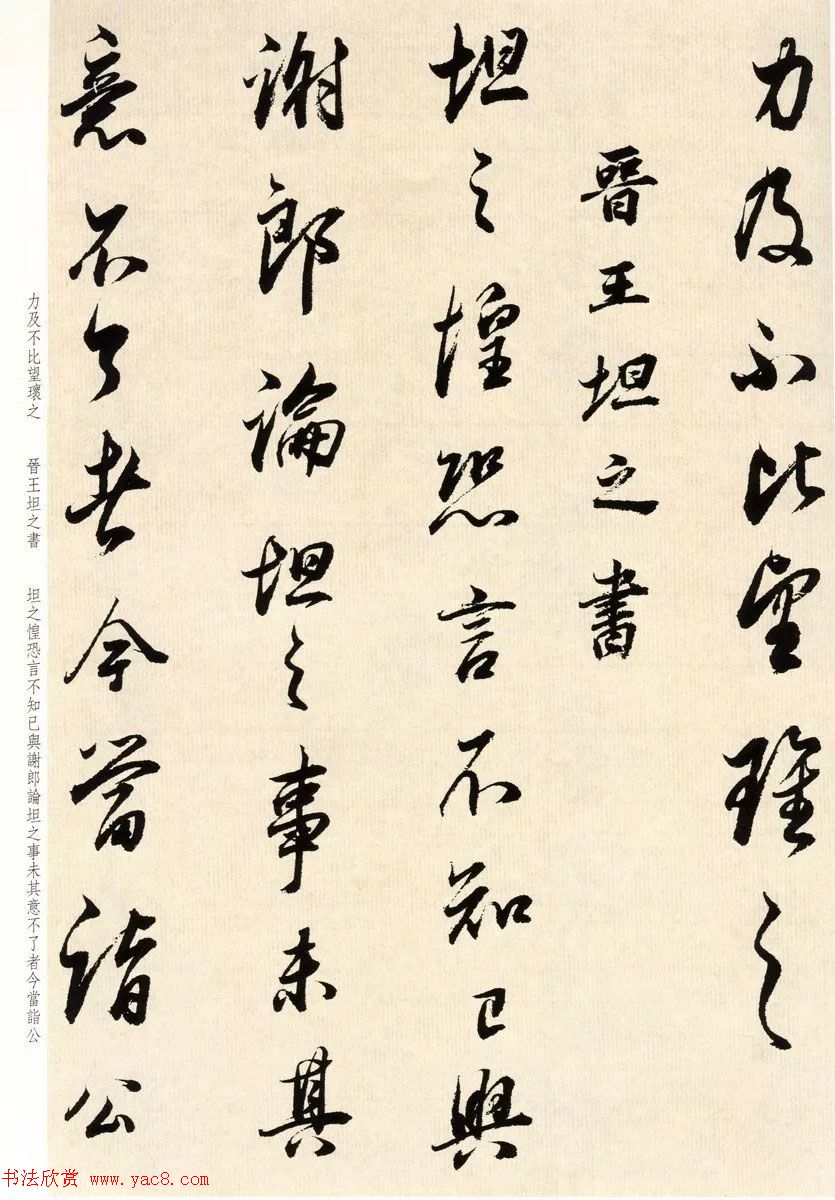 力及不比望瓌之
晉王坦之書
坦之惶恐言不知已與
謝郎論坦之事未其
意不了者今當詣公
力及不比望瓌之 晉王坦之書 坦之惶恐言不知已與謝郎論坦之事未其意不了者今當詣公
书法欣赏 www.yac8.com